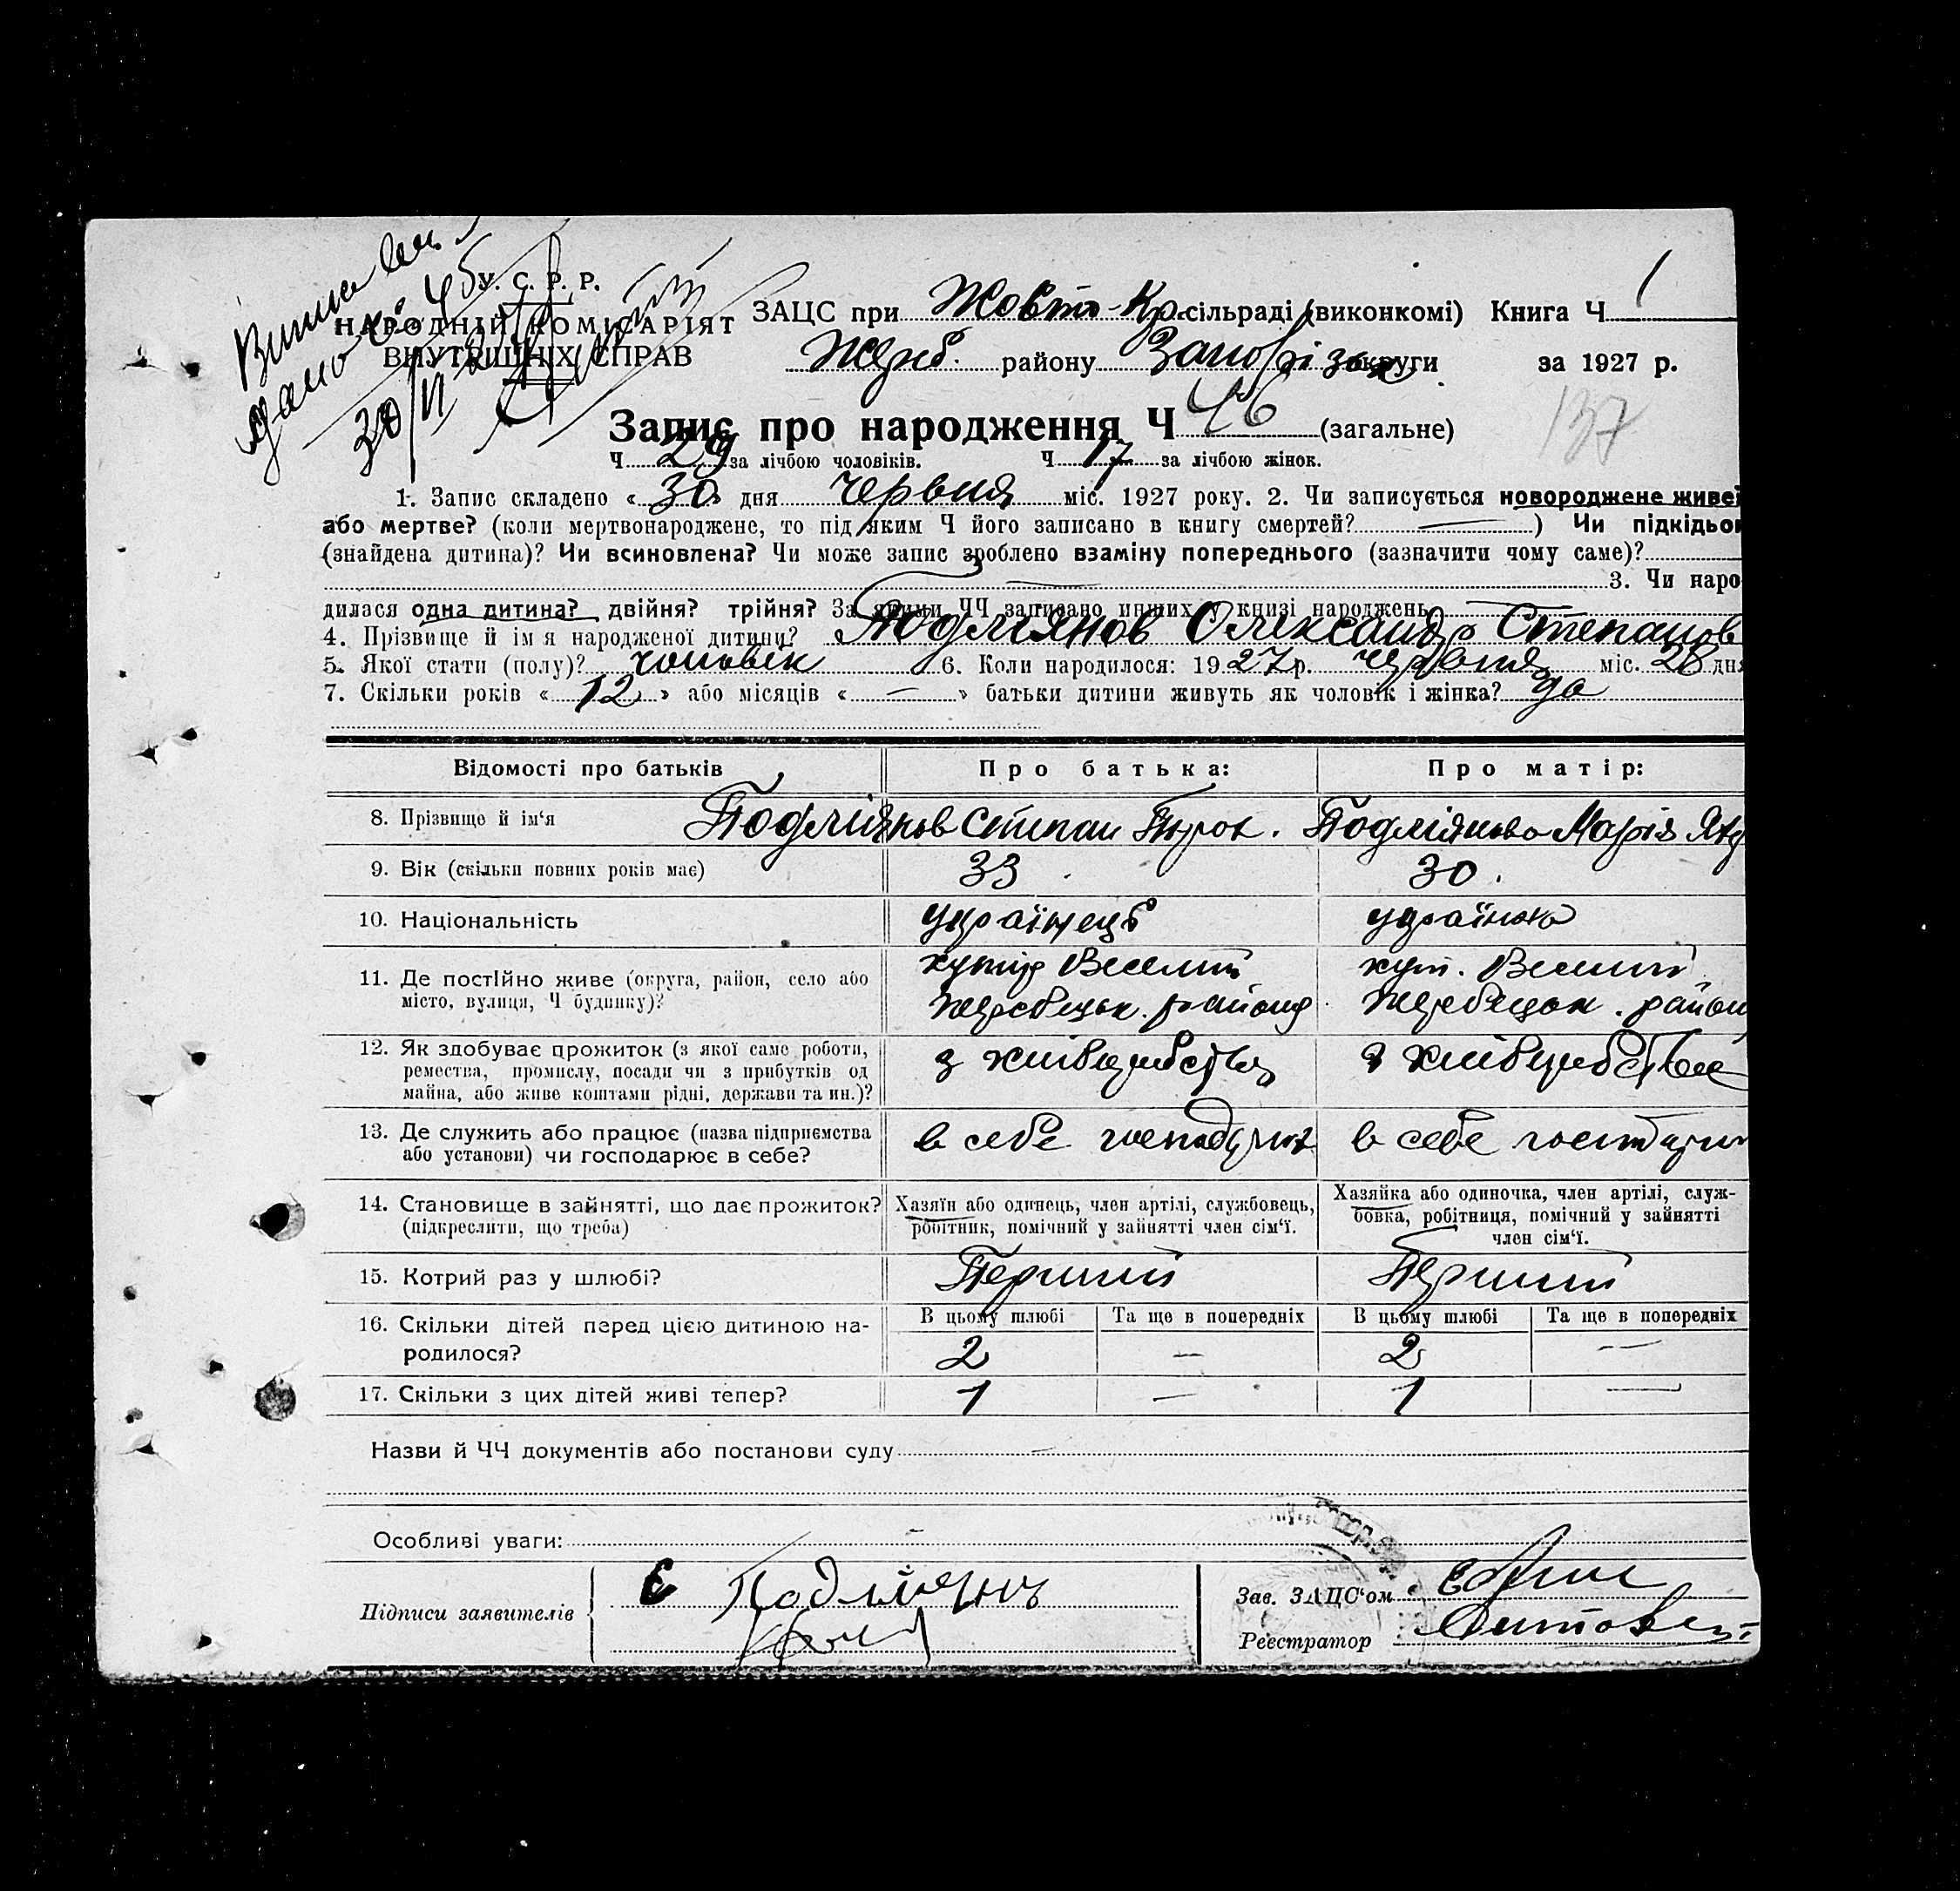 У. С. Р. Р.
НАРОДНІЙ КОМІСАРІЯТ
ВНУТРІШНІХ СПРАВ
30/VI
ЗАЦС при Жовто-Кр. сільраді (виконкомі) Книга Ч 1
Жереб. району Запорізьк округи за 1927 р.
Запис про народження Ч 46 (загальне)
137
Ч 29 за лічбою чоловіків. Ч 17 за лічбою жінок.
1. Запис складено « 30 » дня червня міс. 1927 року. 2. Чи записується новороджене живе
або мертве? (коли мертвонароджене, то під яким Ч його записано в книгу смертей? — ) Чи підкідьо
(знайдена дитина)? Чи всиновлена? Чи може запис зроблено взаміну попереднього (зазначити чому саме)?
3. Чи наро
дилася одна дитина? двійня? трійня? За якими ЧЧ записано инших у книзі народжень
4. Прізвище й ім я народженої дитини? Подміянов Олександр Степанов
5. Якої стати (полу)? чоловік 6. Коли народилося: 1927 р. червня міс. 28 дня
7. Скільки років « 12 » або місяців « — » батьки дитини живуть як чоловік і жінка? да
Відомості про батьків Про батька: Про матір:
8. Прізвище й ім‘я Подміянов Степан Подміянова Марія
9. Вік (скільки повних років має) 33 30.
10. Національність українець українка
11. Де постійно живе (округа, район, село або хутір Веселий хут. Веселий
місто, вулиця, Ч будинку)? Жеребецьк. району Жеребецьк. район
12. Як здобуває прожиток (з якої саме роботи, з хліборобства з хліборобства
ремества, промислу, посади чи з прибутків од
майна, або живе коштами рідні, держави та ин.)?
13. Де служить або працює (назва підприємства в себе господарює в себе
або установи) чи господарює в себе?
14. Становище в зайнятті, що дає прожиток? Хазяїн або одинець, член артілі, службовець, Хазяйка або одиночка, член артілі, служ-
(підкреслити, що треба) робітник, помічний у зайнятті член сім‘ї. бовка, робітниця, помічний у зайнятті
член сім‘ї.
15. Котрий раз у шлюбі? Перший Перший
16. Скільки дітей перед цією дитиною на- В цьому шлюбі Та ще в попередніх В цьому шлюбі Та ще в попередніх
родилося? 2 — 2 —
17. Скільки з цих дітей живі тепер? 1 — 1 —
Назви й ЧЧ документів або постанови суду —
Особливі уваги: —
Підписи заявителів С Подмиянов
Зав. ЗАЦС‘ом
Реєстратор